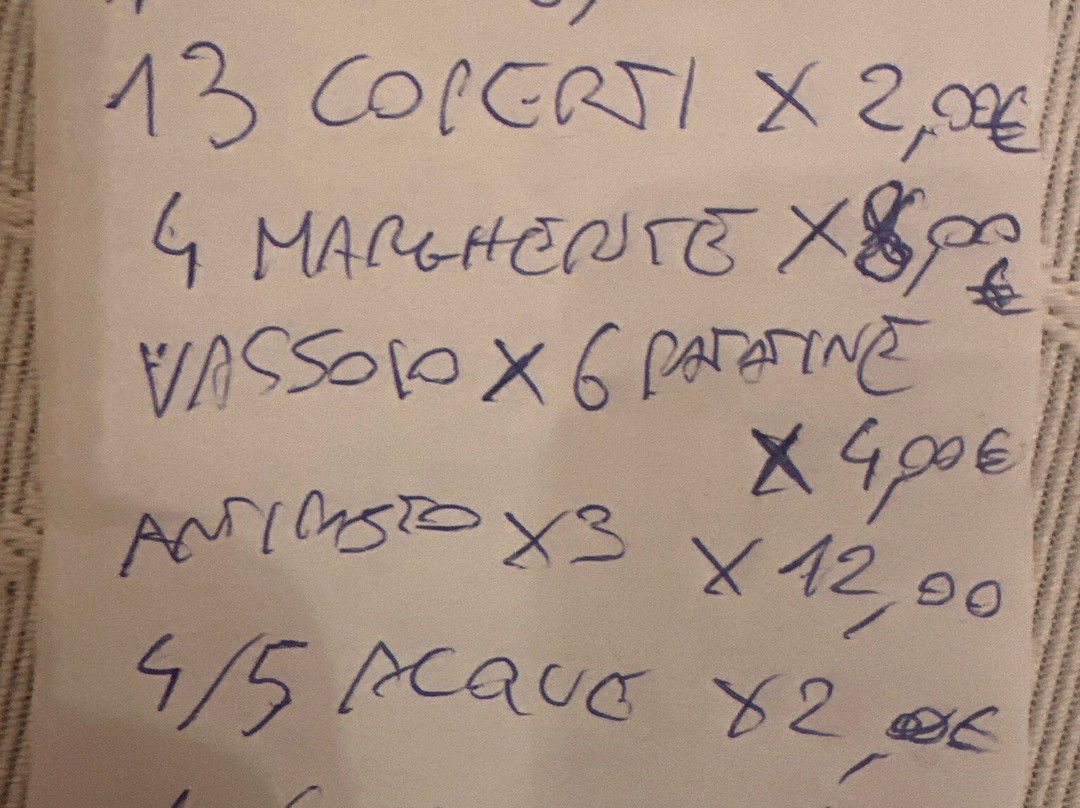 13 COPERTI X 2,00€
4 MARGHERITE X 8,00 €
VASSOIO X 6 PATATINE
X 4,00€
ANTIPASTO X3 X 12,00
4/5 ACQUE X2,00€